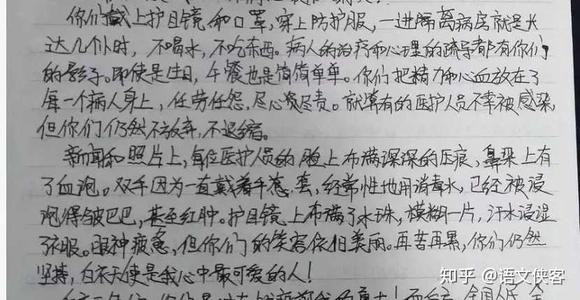 你们戴上护目镜和口罩,穿上防护服,一进隔离病房就是长
达几小时,不喝水,不吃东西。病人的治疗和心理的疏导都有你们
的影子。即使是生日,午餐也是简简单单。你们把精力和心血放在了
每一个病人身上,任劳任怨,尽心尽责。就算有的医护人员不幸被感染,
但你们仍然不放弃,不退缩。
新闻和照片上,每位医护人员的脸上布满深深的压痕,鼻梁上有
了血泡。双手因为一直戴着手套,经常性地用消毒水,已经被浸
泡得皱巴巴,甚至红肿。护目镜上布满了水珠,模糊一片,汗水浸湿
衣服。眼神疲惫,但你们的笑容依旧美丽。再苦再累,你们仍然
坚持,白衣天使是我心中最可爱的人!
知乎 @语文侠客